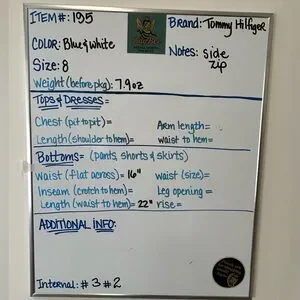 ITEM#: 195
Brand: Tommy Hilfiger
COLOR: Blue & white
Notes: side
zip
Size: 8
Weight (before pkg): 7.9oz
Tops & Dresses=
Chest (pit to pit)=
Arm length=
Length (shoulder to hem)=
waist to hem=
Bottoms= (pants, shorts & skirts)
Waist (flat across)= 16"
waist (size)=
Inseam (crotch to hem)=
Leg opening=
Length (waist to hem)= 22"
rise=
ADDITIONAL INFO:
Internal: #3 #2